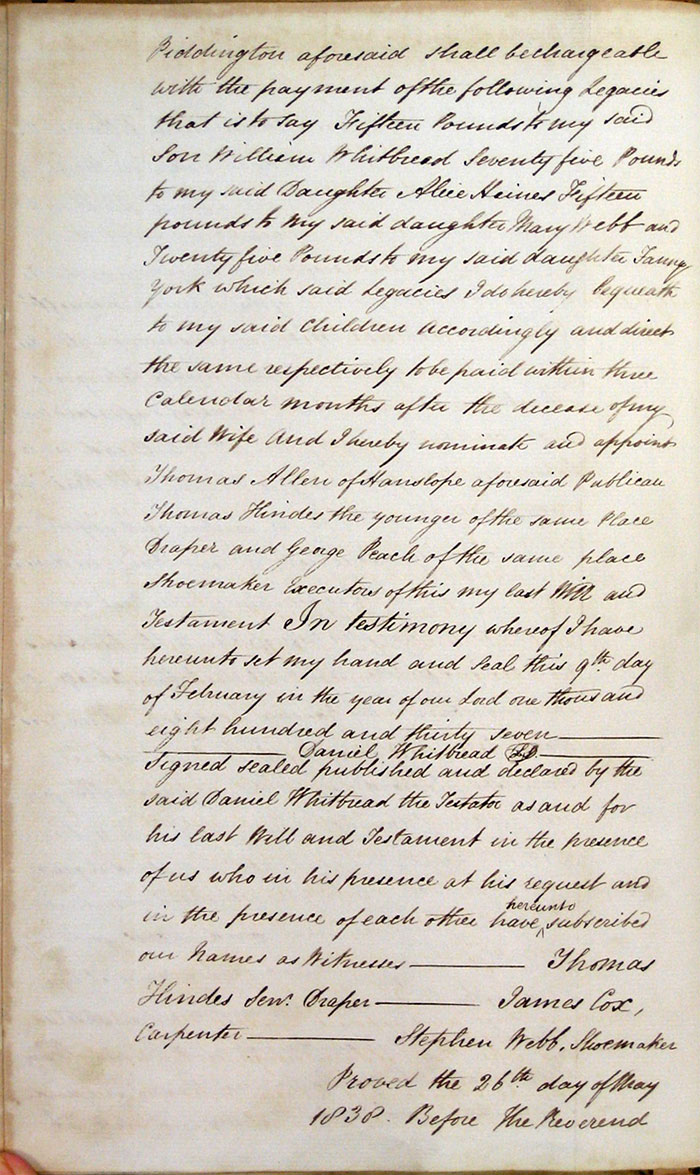 Piddington aforesaid shall be chargeable
with the payment of the following Legacies
that is to say Fifteen Pounds to my said
Son William Whitbread Seventy five Pounds
to my said Daughter Alice Haines Fifteen
pounds to my said daughter Mary Webb and
Twenty five Pounds to my said daughter Fanny
York which said Legacies I do hereby bequeath
to my said Children Accordingly and direct
the same respectively to be paid within three
Calendar months after the decease of my
said Wife And I hereby nominate and appoint
Thomas Allen of Hanslope aforesaid Publican
Thomas Hindes the younger of the same Place
Draper and George Peach of the same place
Shoemaker Executors of this my last Will and
Testament In testimony whereof I have
hereunto set my hand and Seal this 9th day
of February in the year of our Lord one thousand
eight hundred and thirty seven
Daniel Whitbread LS
Signed sealed published and declared by the
said Daniel Whitbread the Testator as and for
his last Will and Testament in the presence
of us who in his presence at his request and
in the presence of each other have hereunto subscribed
our Names as Witnesses Thomas
Hindes Senr. Draper James Cox,
Carpenter Stephen Webb, Shoemaker
Proved the 26th day of May
1838. Before The Reverend